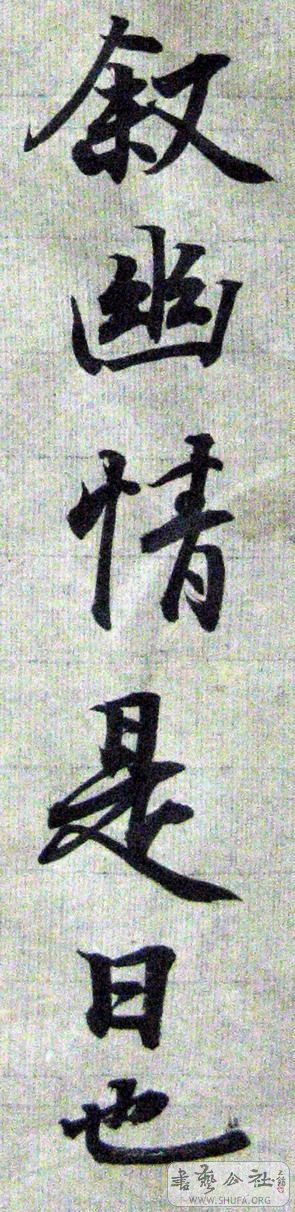 叙幽情是日也
書藝公社
WWW.SHUFA.ORG